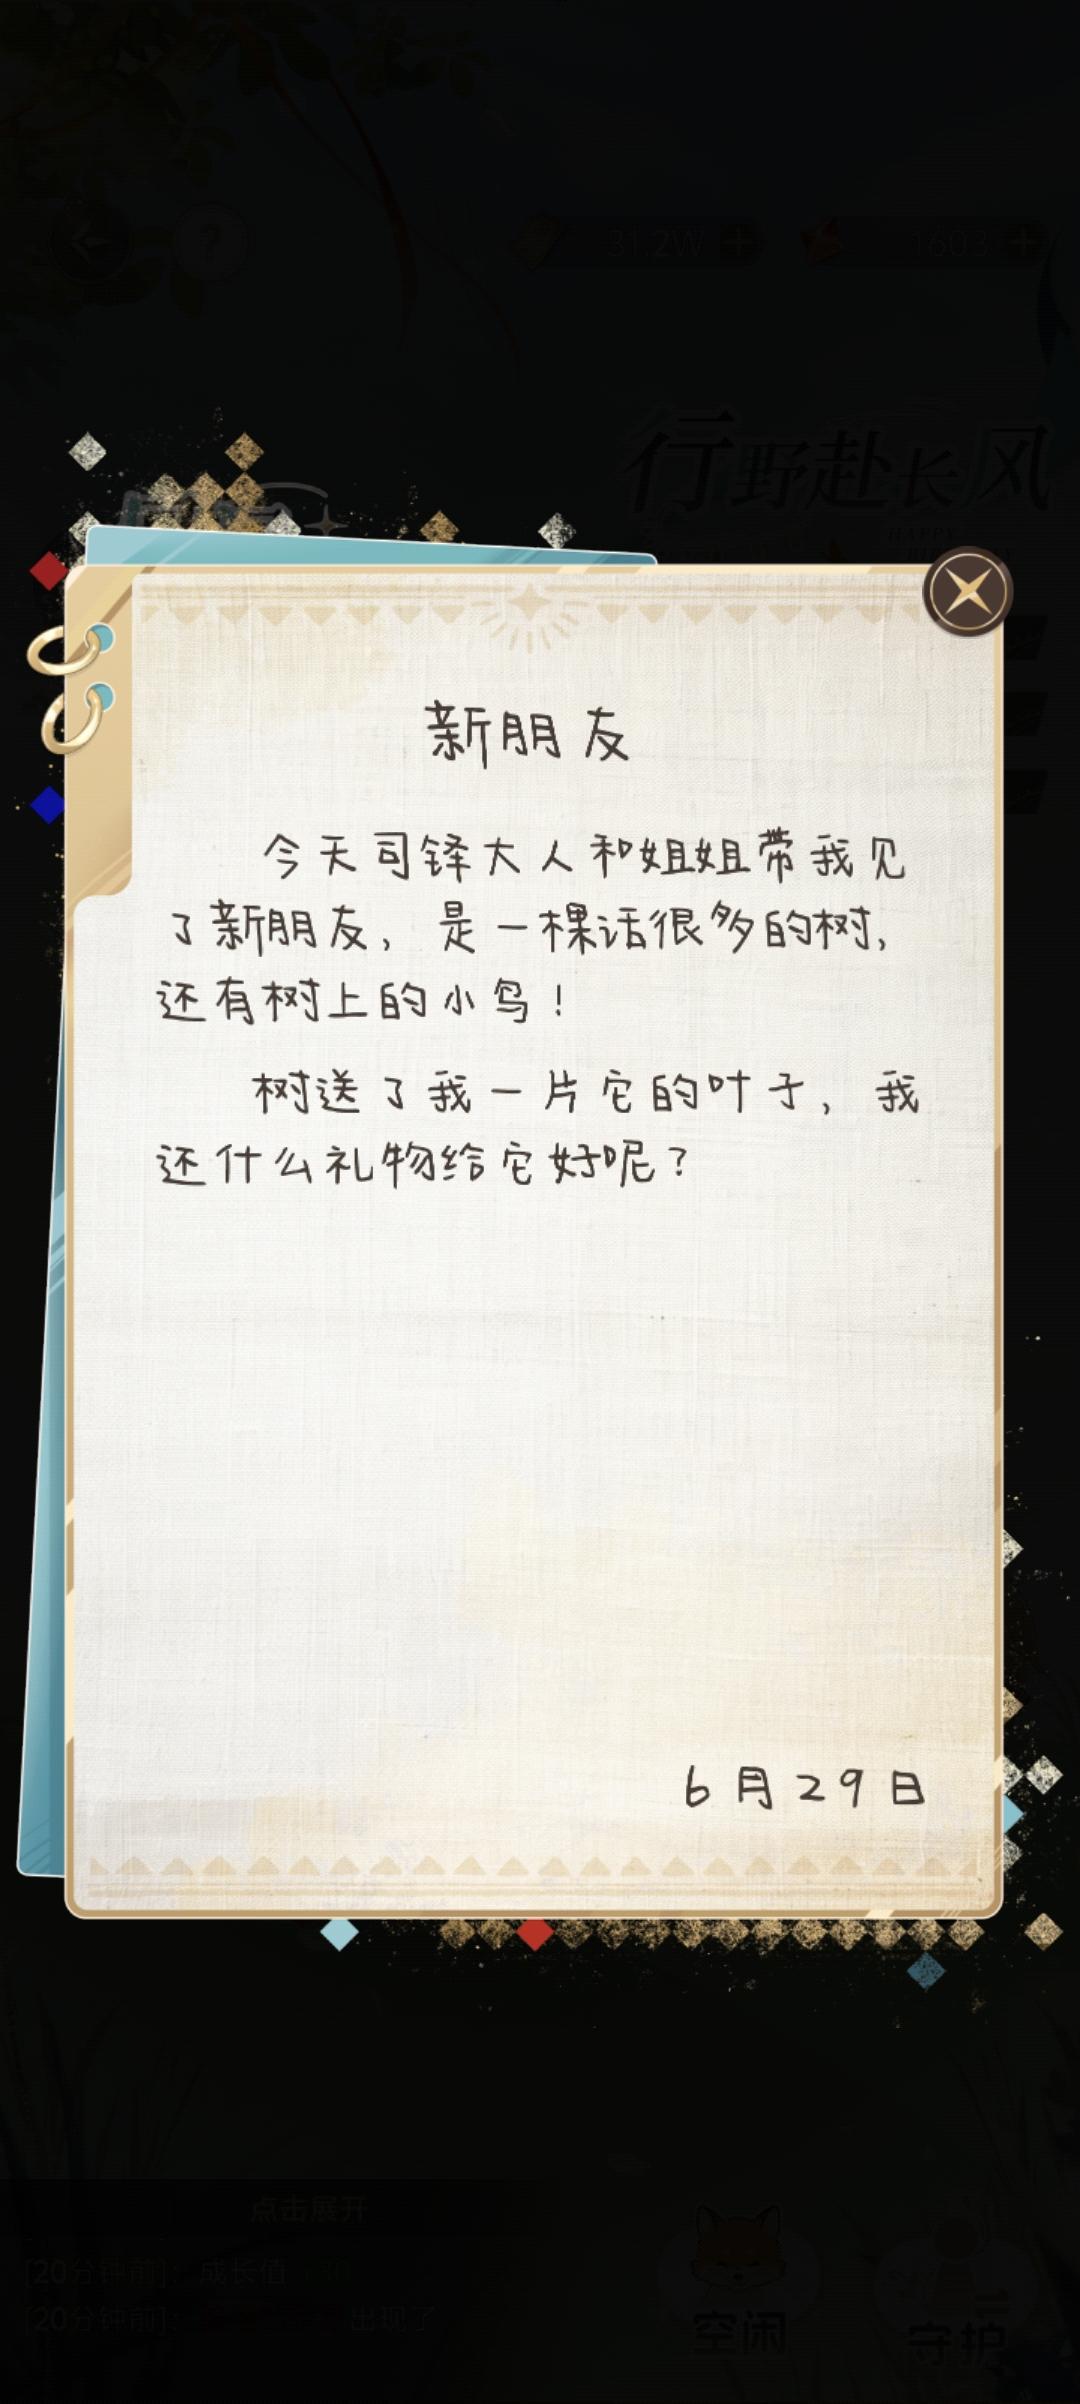 31.2W
1603
行野赴长风
HAPPY
新朋友
今天司铎大人和姐姐带我见
了新朋友，是一棵话很多的树，
还有树上的小鸟！
树送了我一片它的叶子，我
还什么礼物给它好呢？
6月29日
点击展开
[20分钟前]：成长值
[20分钟前]：出现了
空闲
守护